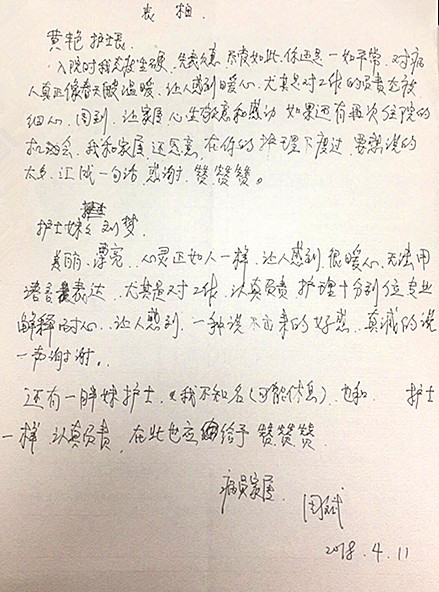 表扬
黄艳护士长
入院时我态度生硬、先表歉意 不管如此、你还是一如平常、对病
人真正像春天般温暖、让人感到暖心、尤其是对工作的负责
细心、周到、让家属心生敬意和感动 如果还有再次住院的
机会、我和家属还愿意、在你的护理下度过 要想说的
太多、汇成一句话 感谢、赞赞赞。
护士妹 刘梦
美丽、漂亮 心灵正如人一样、让人感到很暖心、无法用
语言表达、尤其是对工作、认真负责 护理十分到位专业
解释耐心、让人感到、一种说不出来的好感、真诚的说
一声谢谢。
还有一胖妹护士、我不知名(可能休息)、也和 护士
一样 认真负责、在此也应给予 赞赞赞
病员家属
周斌
2018.4.11